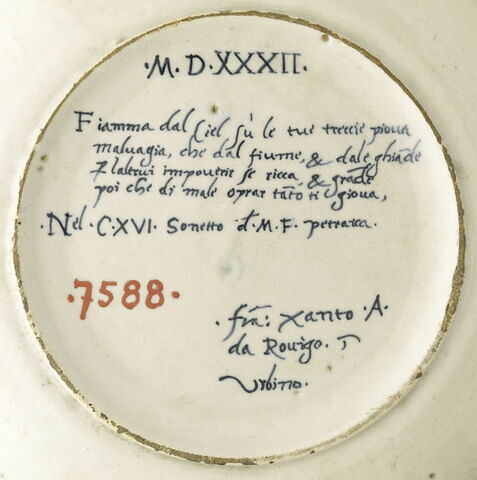 ·M·D·XXXII·
Fiamma dal Ciel sù le tue treccie pioua
maluagia, che dal fiume, & dale ghiãde
7 laltrui impouerir se ricca & grãde
poi che di male oprar tãto ti gioua,
·Nel·C·XVI· Sonetto d·M·F· petrarca·
·7588·
·frã: Xanto·A·
da Rouigo· ĩ
Vrbino·